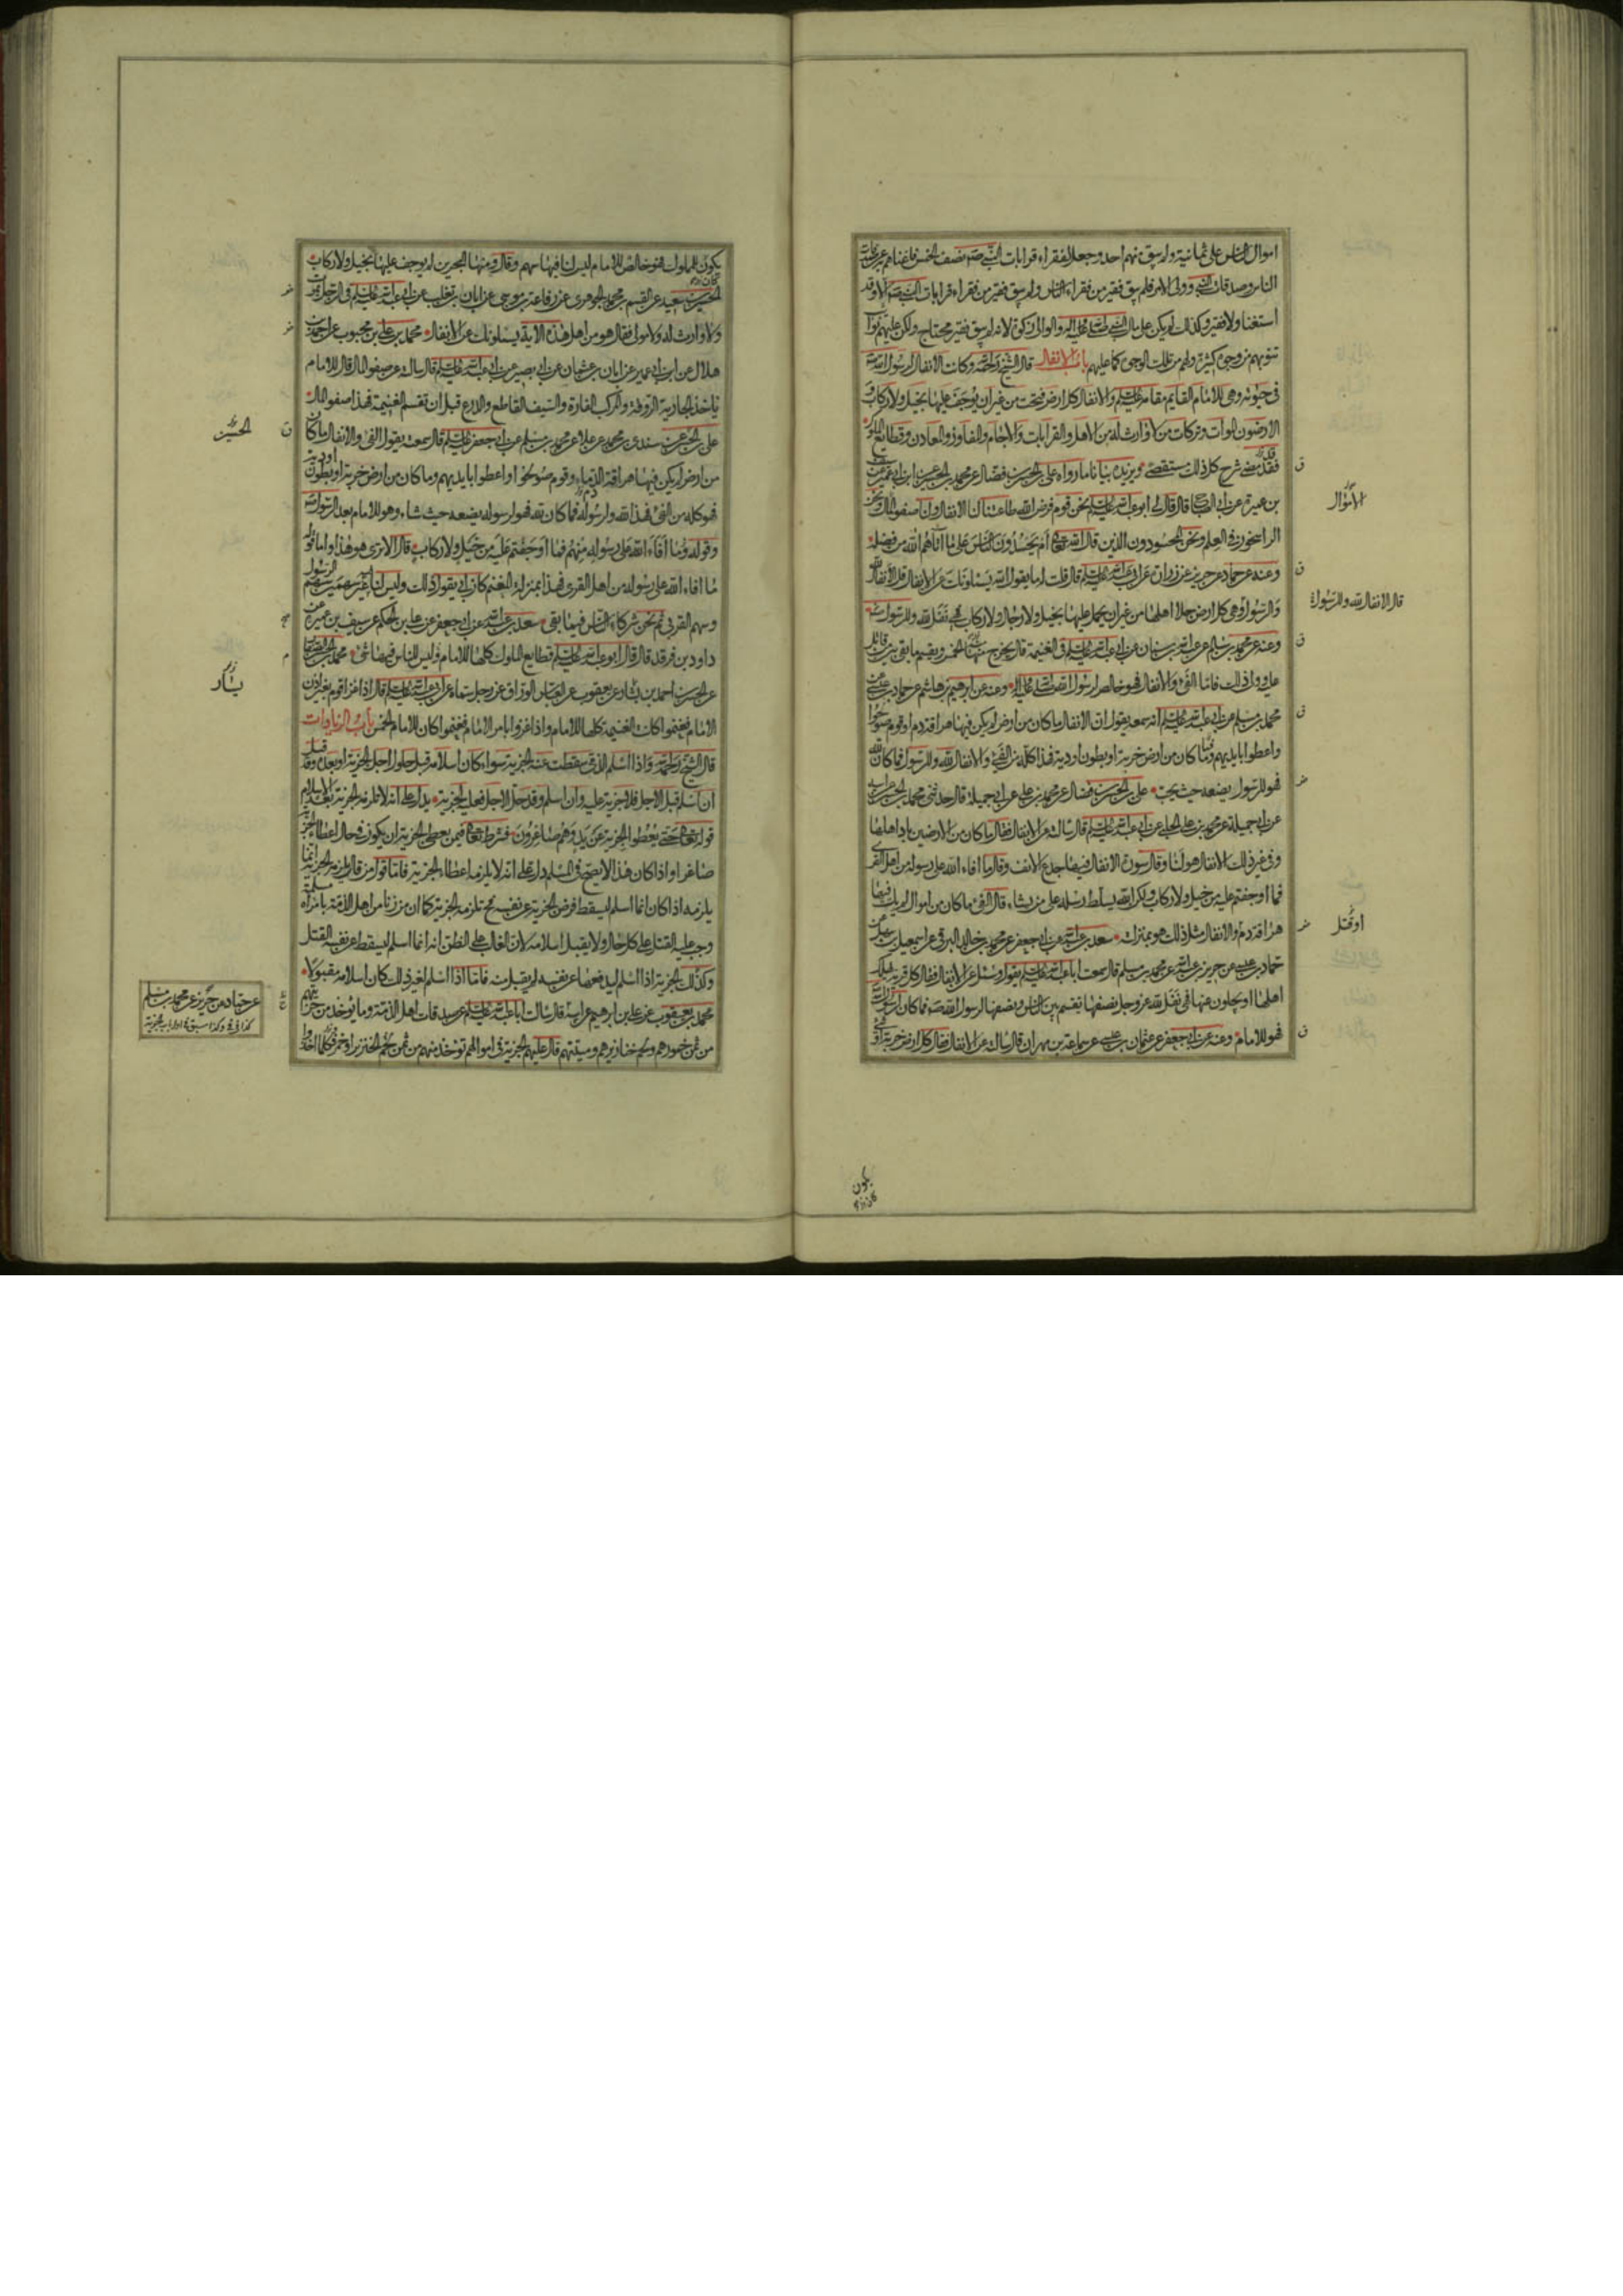 اموال الناس على ثمانية ولم يبق منهم احد وجعل للفقراء قرابات النبي صه نصف الخمس فاغناهم به عن صدقات
الناس وصدقات النبي وولى الامر فلم يبق فقير من فقراء الناس ولم يبق فقير من فقراء قرابات النبي صه الا وقد
استغنا ولا فقير وكذلك لم يكن على مال النبي صلى الله عليه واله والوالى زكوة لانه لم يبق فقير محتاج ولكن عليهم نوائب
تنوبهم من وجوه كثيرة ولهم من تلك الوجوه كما عليهم باب الانفال قال الشيخ رحمه الله وكانت الانفال لرسول الله
فى حيوته وهى للامام القايم مقامه عليه السلم والانفال كل ارض فتحت من غير ان يوجف عليها بخيل ولا ركاب و
الارضون الموات وتركات من لا وارث له من الاهل والقرابات والاجام والمفاوز والمعادن وقطايع الملوك
فقد مضى شرح كل ذلك مستقصى ويزيده بيانا ما رواه على بن الحسن بن فضال عن محمد بن الحسن عن ابن ابى عمير عن سيف
بن عميرة عن ابى الصباح قال قال لى ابو عبد الله عليه السلم نحن قوم فرض الله طاعتنا لنا الانفال ولنا صفو المال ونحن
الراسخون فى العلم ونحن المحسودون الذين قال الله تعالى ام يحسدون الناس على ما آتاهم الله من فضله
وعنه عن حماد عن حريز عن زرارة عن ابى عبد الله عليه السلم قال قلت له ما يقول الله يسئلونك عن الانفال قل الانفال لله
والرسول وهى كل ارض جلا اهلها من غير ان يحمل عليها بخيل ولا رجال ولا ركاب فهى نفل لله وللرسول
وعنه عن محمد بن سالم عن عبد الله بن سنان عن ابى عبد الله عليه السلم فى الغنيمة قال يخرج منها الخمس ويقسم ما بقى بين من قاتل
عليه وولى ذلك فاما الفئ والانفال فهو خالص لرسول الله صلى الله عليه واله وعنه عن ابرهيم بن هاشم عن حماد بن عيسى عن
محمد بن مسلم عن ابى عبد الله عليه السلم انه سمعه يقول ان الانفال ما كان من ارض لم يكن فيها هراقة دم او قوم صولحوا
واعطوا بايديهم وما كان من ارض خربة او بطون اودية فهذا كله من الفئ والانفال لله وللرسول فما كان لله
فهو للرسول يضعه حيث يحب على بن الحسن بن فضال عن محمد بن على عن ابى جميلة قال حدثنى محمد بن الحسن عن ابيه
عن ابى جميلة عن محمد بن على الحلبى عن ابى عبد الله عليه السلم قال سالته عن الانفال فقال ما كان من الارضين باد اهلها
وفى غير ذلك الانفال هو لنا وقال سورة الانفال فيها جدع الانف وقال ما افاء الله على رسوله من اهل القرى
فما اوجفتم عليه من خيل ولا ركاب ولكن الله يسلط رسله على من يشاء قال الفئ ما كان من اموال لم يكن فيها
هراقة دم والانفال مثل ذلك هو بمنزلته سعد بن عبد الله عن ابى جعفر عن محمد بن خالد البرقى عن اسمعيل بن سهل عن
حماد بن عيسى عن حريز بن عبد الله عن محمد بن مسلم قال سمعت ابا عبد الله عليه السلم يقول وسئل عن الانفال فقال كل قرية يهلك
اهلها او يجلون عنها فهى نفل لله عز وجل نصفها تقسم بين الناس ونصفها لرسول الله صه فما كان لرسول الله
فهو للامام وعنه عن ابى جعفر عن عثمان بن عيسى عن سماعة بن مهران قال سالته عن الانفال فقال كل ارض خربة او شئ
الاموال
قال الانفال لله وللرسول
او قتل
يكون
يكون للملوك فهو خالص للامام ليس للناس فيها سهم وقال ومنها البحرين لم يوجف عليها بخيل ولا ركاب
الحسين بن سعيد عن القسم بن محمد الجوهرى عن رفاعة بن موسى عن ابان بن تغلب عن ابى عبد الله عليه السلم فى الرجل يموت
ولا وارث له ولا مولى فقال هو من اهل هذه الاية يسئلونك عن الانفال محمد بن على بن محبوب عن احمد بن
هلال عن ابن ابى عمير عن ابان بن عثمان عن ابى بصير عن ابى عبد الله عليه السلم قال سالته عن صفو المال قال للامام
ياخذ الجارية الروقة والمركب الفارة والسيف القاطع والدرع قبل ان تقسم الغنيمة فهذا صفو المال
على بن الحسن عن سندى بن محمد عن علا عن محمد بن مسلم عن ابى جعفر عليه السلم قال سمعته يقول الفئ والانفال ما كان
من ارض لم يكن فيها هراقة الدماء وقوم صولحوا او اعطوا بايديهم وما كان من ارض خربة او بطون اودية
فهو كله من الفئ فهذا لله ولرسوله فما كان لله فهو لرسوله يضعه حيث شاء وهو للامام بعد الرسول
وقوله وما افاء الله على رسوله منهم فما اوجفتم عليه من خيل ولا ركاب قال الا ترى هو هذا واما قوله
ما افاء الله على رسوله من اهل القرى فهذا بمنزلة المغنم كان ابى يقول ذلك وليس لنا فيه غير سهمين سهم الرسول
وسهم القربى ثم نحن شركاء الناس فيما بقى سعد بن عبد الله عن ابى جعفر عن على بن الحكم عن سيف بن عميرة عن
داود بن فرقد قال قال ابو عبد الله عليه السلم قطايع الملوك كلها للامام وليس للناس فيها شئ محمد بن الحسن الصفار
عن الحسن بن احمد بن بشار عن يعقوب عن العباس الوراق عن رجل سماه عن ابى عبد الله عليه السلم قال اذا غزا قوم بغير اذن
الامام فغنموا كانت الغنيمة كلها للامام واذا غزوا بامر الامام فغنموا كان للامام الخمس باب الزيادات
قال الشيخ رحمه الله واذا اسلم الذمى سقطت عنه الجزية سواء كان اسلامه قبل حلول اجل الجزية او بعده وقد قيل
ان اسلم قبل الاجل فلا جزية عليه وان اسلم وقد حل الاجل فعليه الجزية يدل على انه لا تلزمه الجزية بعد الاسلام
قوله تعالى حتى يعطوا الجزية عن يد وهم صاغرون فشرط تعالى فيمن يعطى الجزية ان يكون فى حال اعطاء الجزية
صاغرا واذا كان هذا لا يصح فى المسلم دل على انه لا يلزمه اعطاء الجزية فاما قول من قال يلزمه الجزية انما
يلزمه اذا كان انما اسلم ليسقط فرض الجزية عن نفسه فح تلزمه الجزية كما ان من زنا من اهل الذمة بامراة مسلمة
وجب عليه القتل على كل حال ولا يقبل اسلامه لان الغالب على الظن انه انما اسلم ليسقط عن نفسه القتل
وكذلك الجزية اذا اسلم ليدفعها عن نفسه لم يقبل منه فاما اذا اسلم لغير ذلك كان اسلامه مقبولا
محمد بن يعقوب عن على بن ابرهيم عن ابيه قال سالت ابا عبد الله عليه السلم عن صدقات اهل الذمة وما يؤخذ من جزيتهم
من ثمن خمورهم ولحم خنازيرهم وميتتهم قال عليهم الجزية فى اموالهم تؤخذ منهم من ثمن لحم الخنزير او خمر فكلما اخذوا
الحسين
يسار
عن حماد عن حريز عن محمد بن مسلم